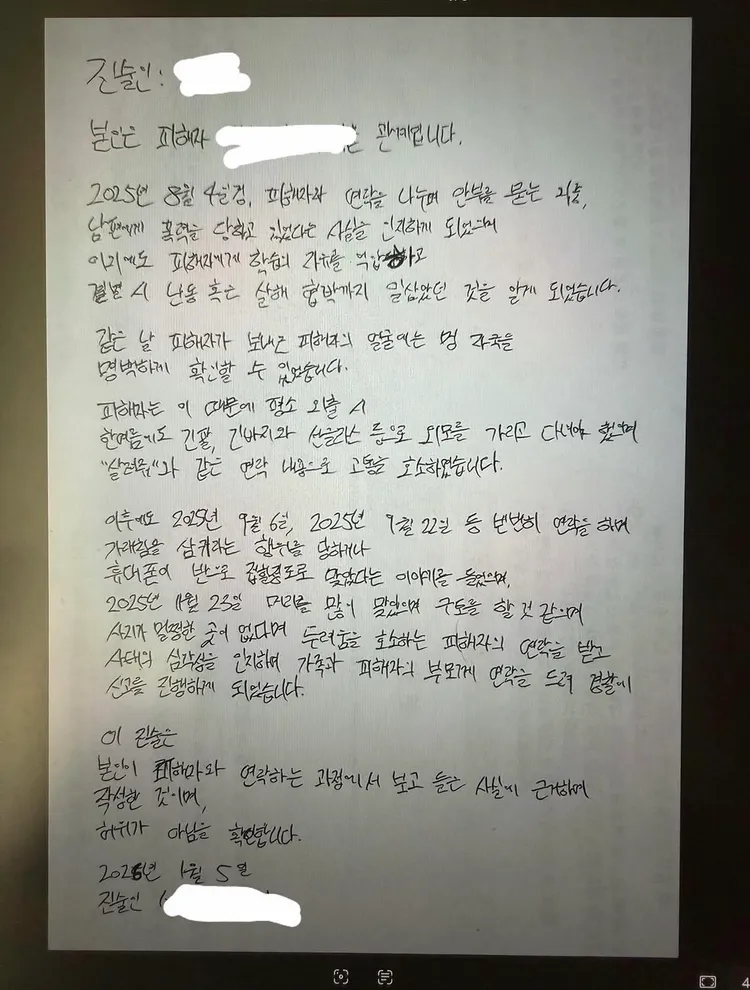 진술인:
본인은 피해자 관계입니다.
2025년 8월 4일경, 피해자와 연락을 나누며 안부를 묻는 와중,
남편에게 폭력을 당하고 있었다는 사실을 인지하게 되었으며
이외에도 피해자에게 학습의 자유를 억압하고
결별 시 난동 혹은 살해 협박까지 일삼았던 것을 알게 되었습니다.
같은 날 피해자가 보내온 피해자의 얼굴에는 멍 자국을
명백하게 확인할 수 있었습니다.
피해자는 이 때문에 평소 외출 시
한여름에도 긴팔, 긴바지와 선글라스 등으로 외모를 가리고 다녀야 했으며
"살려줘"와 같은 연락 내용으로 고통을 호소하였습니다.
이후에도 2025년 9월 6일, 2025년 9월 22일 등 빈번히 연락을 하며
가래침을 삼키라는 행위를 당하거나
휴대폰이 반으로 접힐정도로 맞았다는 이야기를 들었으며,
2025년 11월 23일 머리를 많이 맞았으며 구토를 할 것 같으며
사지가 멀쩡한 곳이 없다며 두려움을 호소하는 피해자의 연락을 받고
사태의 심각성을 인지하여 가족과 피해자의 부모께 연락을 드려 경찰에
신고를 진행하게 되었습니다.
이 진술은
본인이 피해자와 연락하는 과정에서 보고 들은 사실에 근거하여
작성한 것이며,
허위가 아님을 확인합니다.
2026년 1월 5일
진술인 (
4